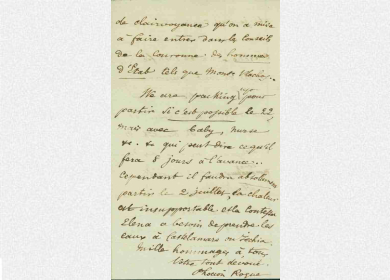 de clairvoyance qu'on a mise
à faire entrer dans le conseil
de la couronne des hommes
d'État tels que Monsr
We are packing pour
partir si c'est possible le 22
mais avec baby, nurse
&. & qui peut dire ce qu'il
fera 8 jours à l'avance.
Cependant il faudra absolument
partir le 2 juillet, la chaleur
est insupportable et la
Elena a besoin de prendre les
eaux à Castelamare ou Ischia.
Mille hommages à
votre tout dévoué